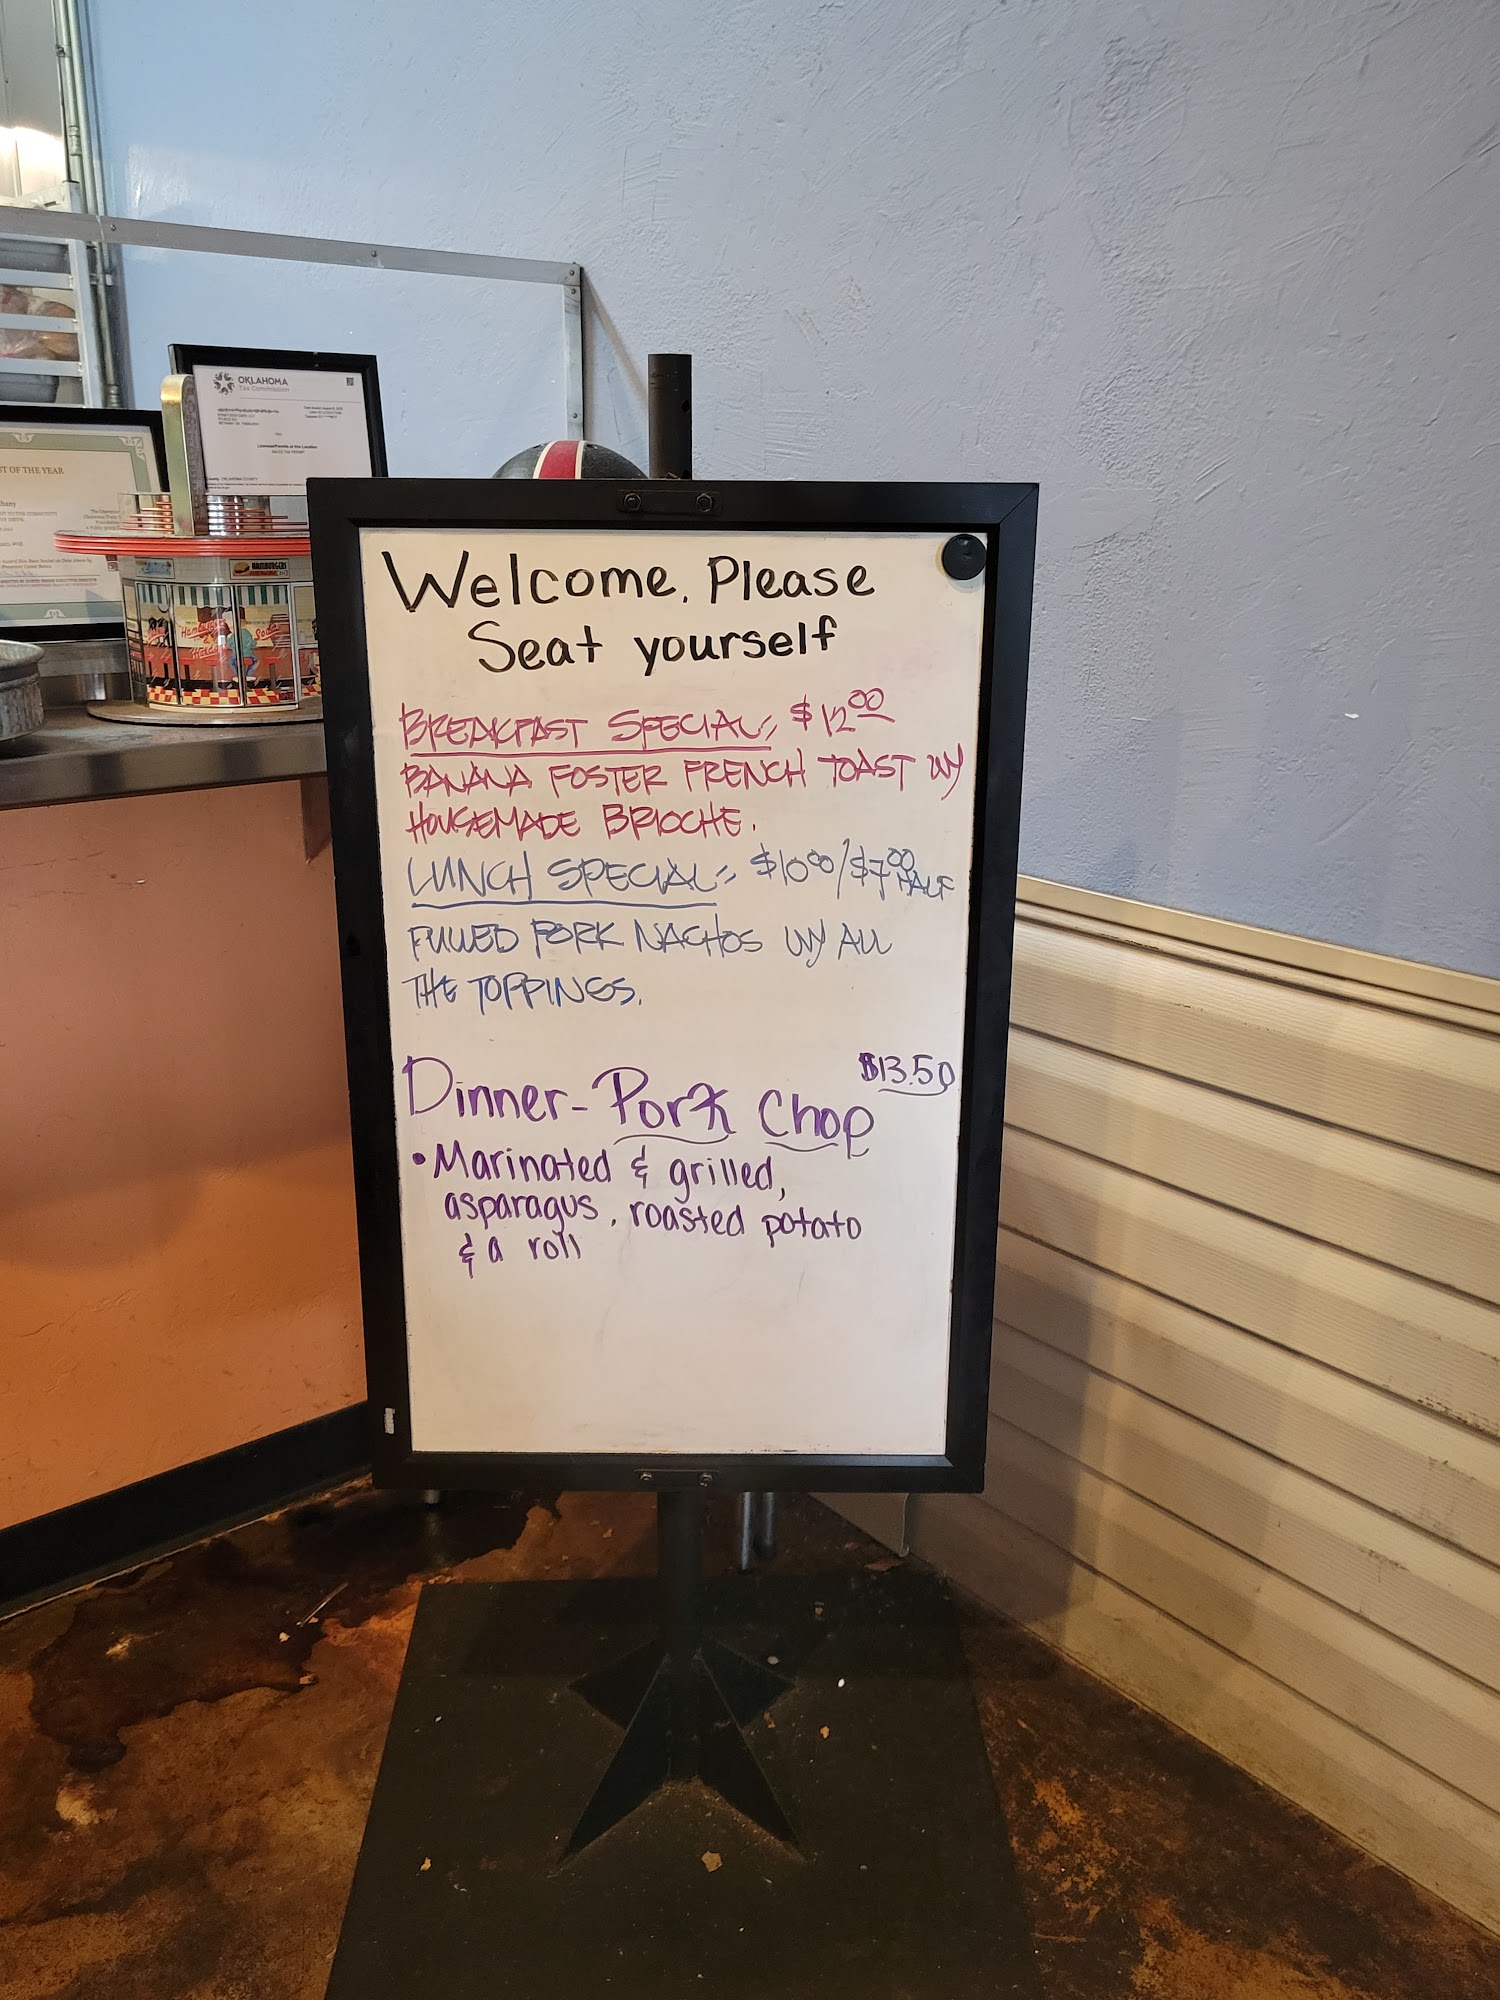 OKLAHOMA
Tax Commission
ST OF THE YEAR
HAMBURGERS
Welcome. Please
Seat yourself
BREAKFAST SPECIAL: $12.00
BANANA FOSTER FRENCH TOAST W/
HOUSEMADE BRIOCHE.
LUNCH SPECIAL: $10.00/$7.00 HALF
PULLED PORK NACHOS W/ ALL
THE TOPPINGS.
$13.50
Dinner - Pork Chop
• Marinated & grilled,
asparagus, roasted potato
& a roll